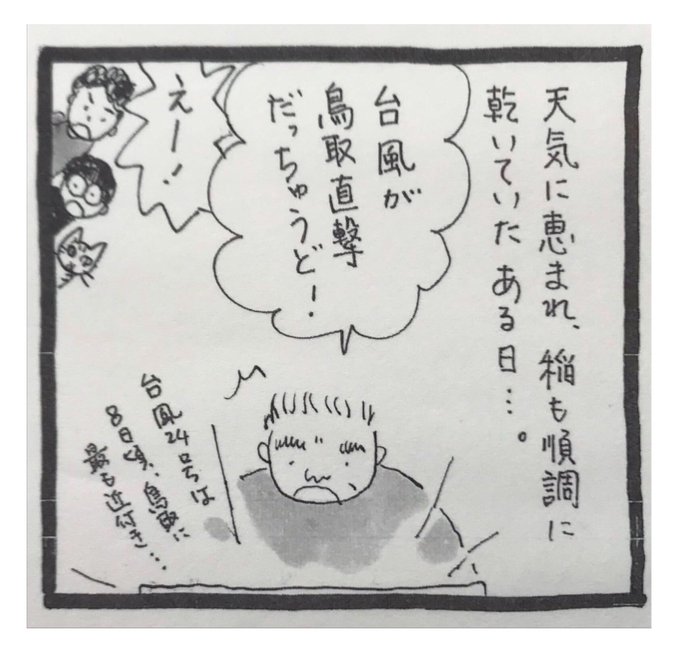 天気に恵まれ、稲も順調に
乾いていた ある日…。
台風が
鳥取直撃
だっちゅうど!
えー!
台風24号は
8日頃、鳥取に
最も近付き…